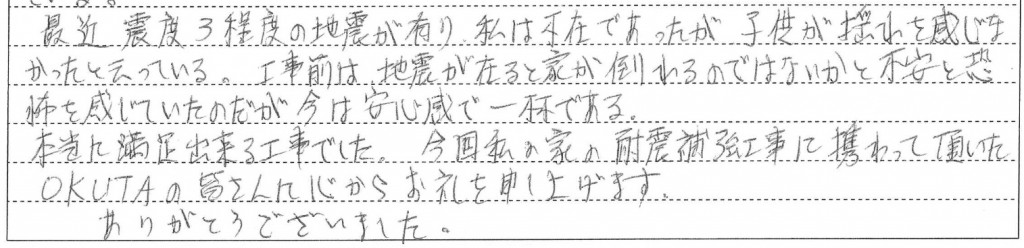 最近震度3程度の地震が有り、私は不在であったが子供が揺れを感じな
かったと云っている。工事前は、地震が在ると家が倒れるのではないかと不安と恐
怖を感じていたのだが今は安心感で一杯である。
本当に満足出来る工事でした。今回私の家の耐震補強工事に携わって頂いた
OKUTAの皆さんに心からお礼を申し上げます。
ありがとうございました。